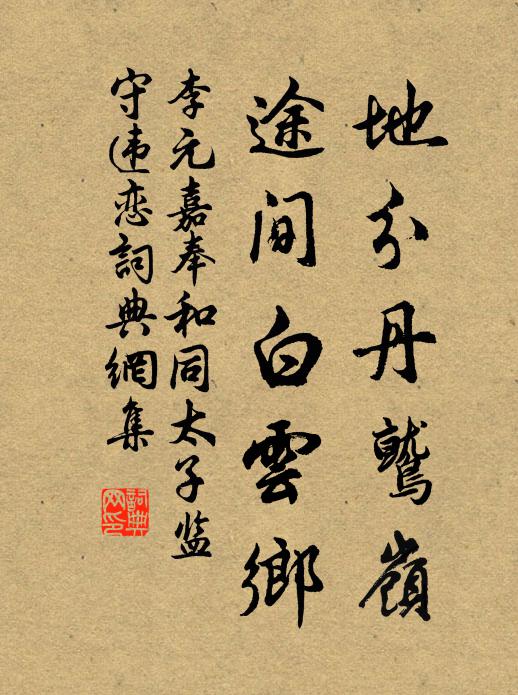 地分丹鷲嶺
途间白雲鄉
李元嘉奉和同太子监
守违恋詞典網集
詞典网印